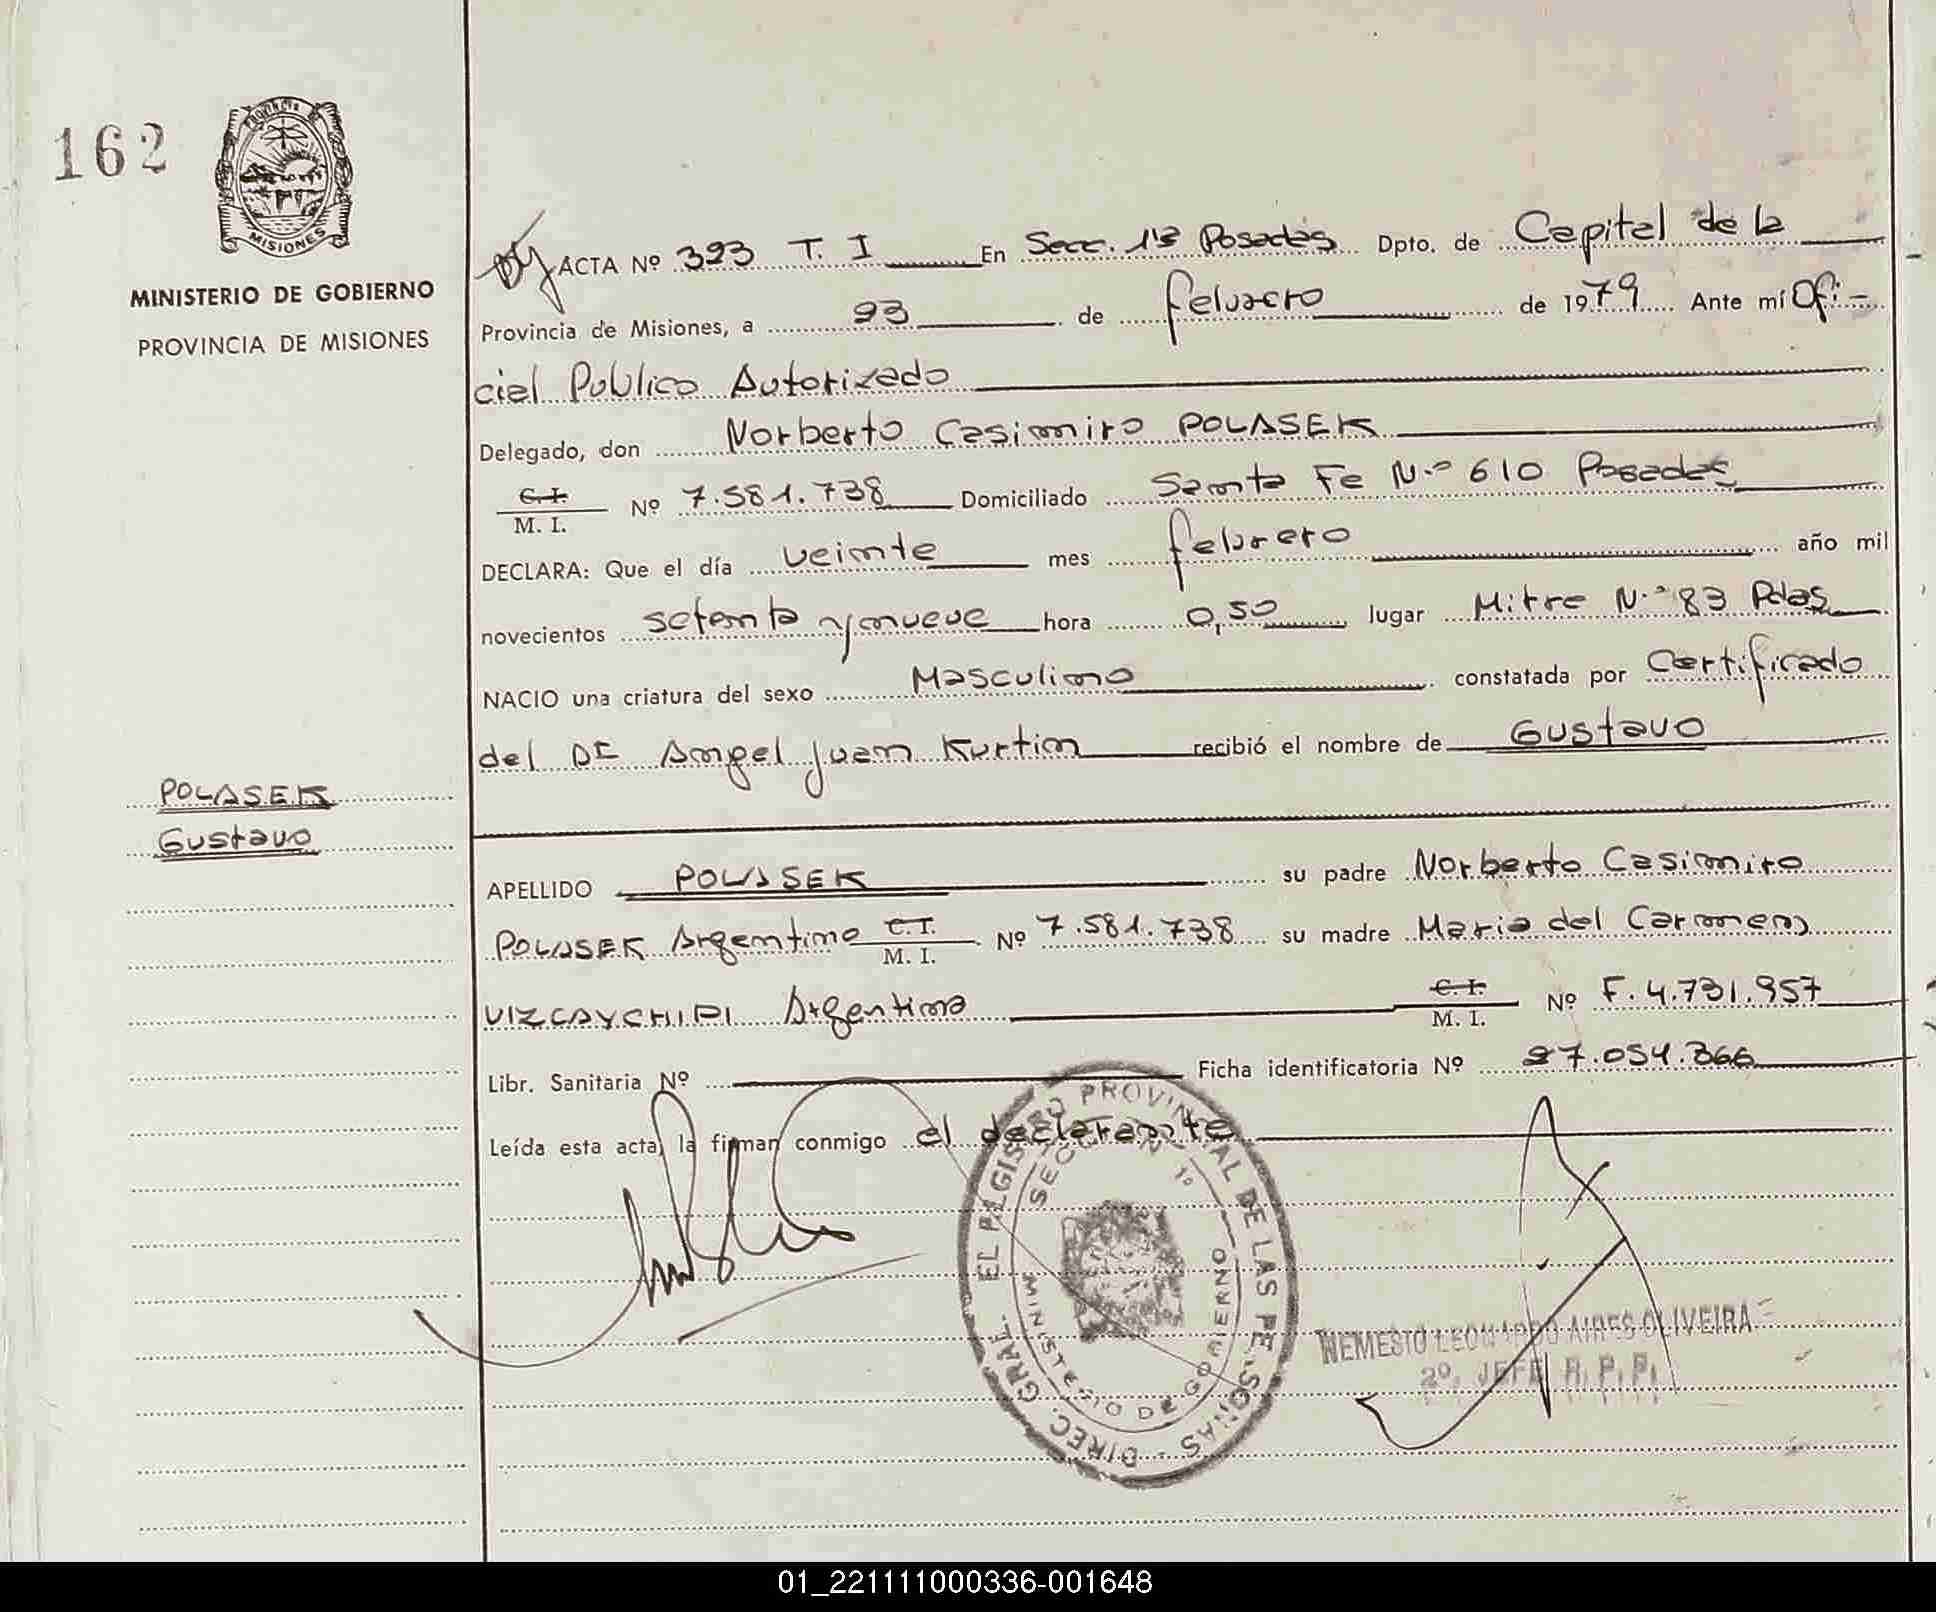 162
Provincia
MISIONES
MINISTERIO DE GOBIERNO
PROVINCIA DE MISIONES
ACTA Nº 393 T. I En Secc. 1ª Posadas Dpto. de Capital de la
Provincia de Misiones, a 23 de febrero de 1979 Ante mí Ofi-
cial Publico Autorizado
Delegado, don Norberto Casimiro POLASEK
C.I.
M. I. Nº 7.581.738 Domiciliado Santa Fe N.º 610 Posadas
DECLARA: Que el día veinte mes febrero año mil
novecientos setenta y nueve hora 0,50 lugar Mitre N.º 83 Pdas
NACIO una criatura del sexo Masculino constatada por Certificado
del Dr Angel Juan Kurtin recibió el nombre de Gustavo
POLASEK
Gustavo
APELLIDO POLASEK su padre Norberto Casimiro
POLASEK Argentino C.I. M. I. Nº 7.581.738 su madre Maria del Carmen
VIZCAYCHIPI Argentina C.I. M. I. Nº F. 4.731.957
Libr. Sanitaria Nº Ficha identificatoria Nº 27.054.366
Leída esta acta, la firman conmigo el declarante
DIREC. GRAL. EL REGISTRO PROVINCIAL DE LAS PERSONAS
SECCION 1º
MINISTERIO DE GOBIERNO
NEMESIO LEONARDO AIRES OLIVEIRA
2º. JEFE R. P. P.
01_221111000336-001648